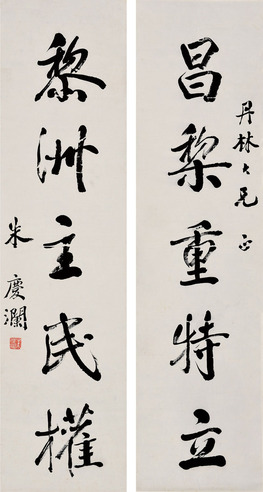 丹林大兄 正
昌黎重特立
黎洲主民權
朱慶瀾